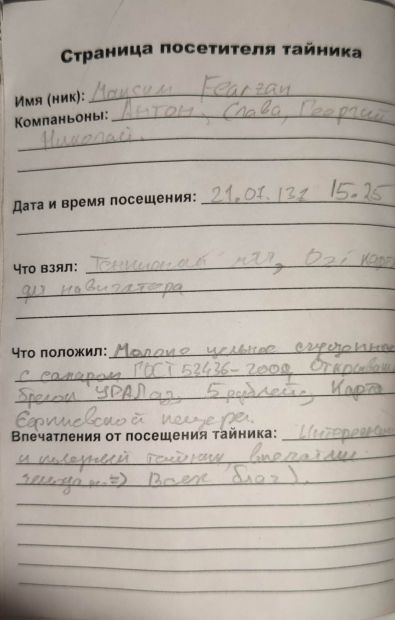 Страница посетителя тайника
Имя (ник): Максим Fearzan
Компаньоны: Антон, Слава, Георгий
Николай.
Дата и время посещения: 15.25
Что взял: Теннисный мяч, Ozi карт
для навигатора
Что положил: Молоко цельное сгущенное
с сахаром ГОСТ 53436-2009,
брелок УРАЛ 5 рублей, Карта
пещеры.
Впечатления от посещения тайника:
и полезный тайник,
Всех благ).